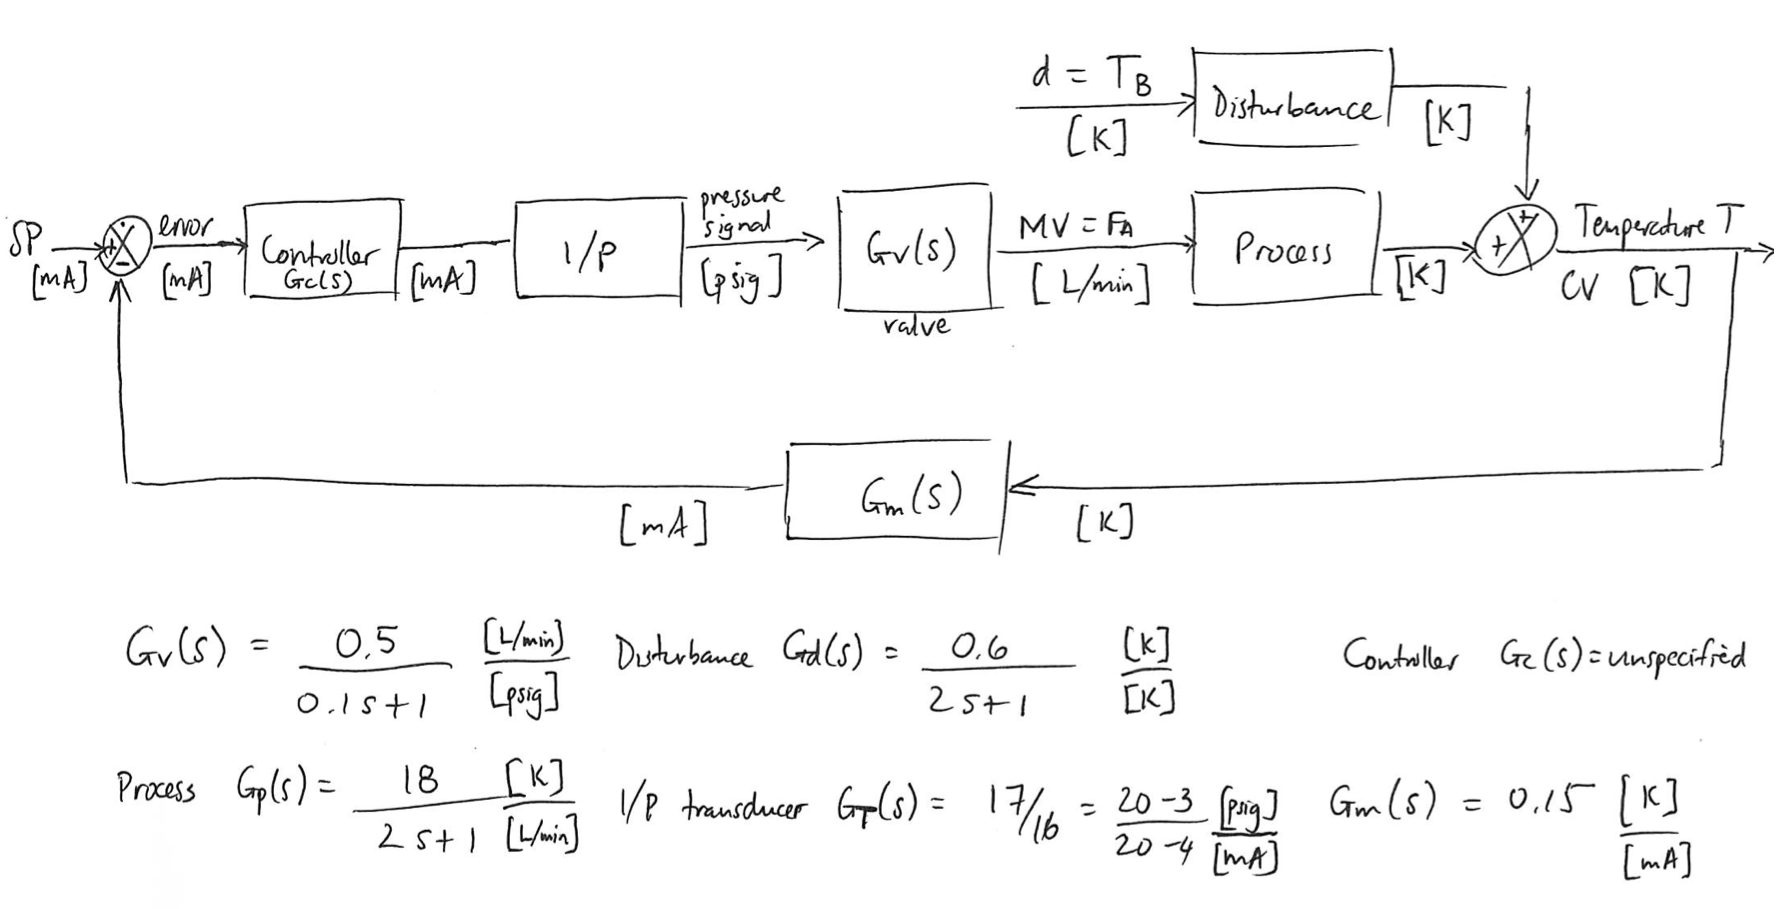 d = TB
[K]
Disturbance
[K]
SP
[mA]
+
-
error
[mA]
Controller
Gc(s)
[mA]
I/P
pressure
signal
[psig]
Gv(s)
valve
MV = FA
[L/min]
Process
[K]
+
+
Temperature T
CV [K]
Gm(s)
[mA]
[K]
Gv(s) = 0.5 / 0.1s+1 [L/min] / [psig] Disturbance Gd(s) = 0.6 / 2s+1 [K] / [K] Controller Gc(s) = unspecified
Process Gp(s) = 18 / 2s+1 [K] / [L/min] I/P transducer GT(s) = 17/16 = 20-3 / 20-4 [psig] / [mA] Gm(s) = 0.15 [K] / [mA]